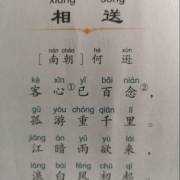 xiāng sòng
相送
nán cháo hé xùn
[南朝]何逊
kè xīn yǐ bǎi niàn
客心已百念①,
gū yóu chóng qiān lǐ
孤游重千里②。
jiāng àn yǔ yù lái
江暗雨欲来,
làng bái fēng chū qǐ
浪白风初起